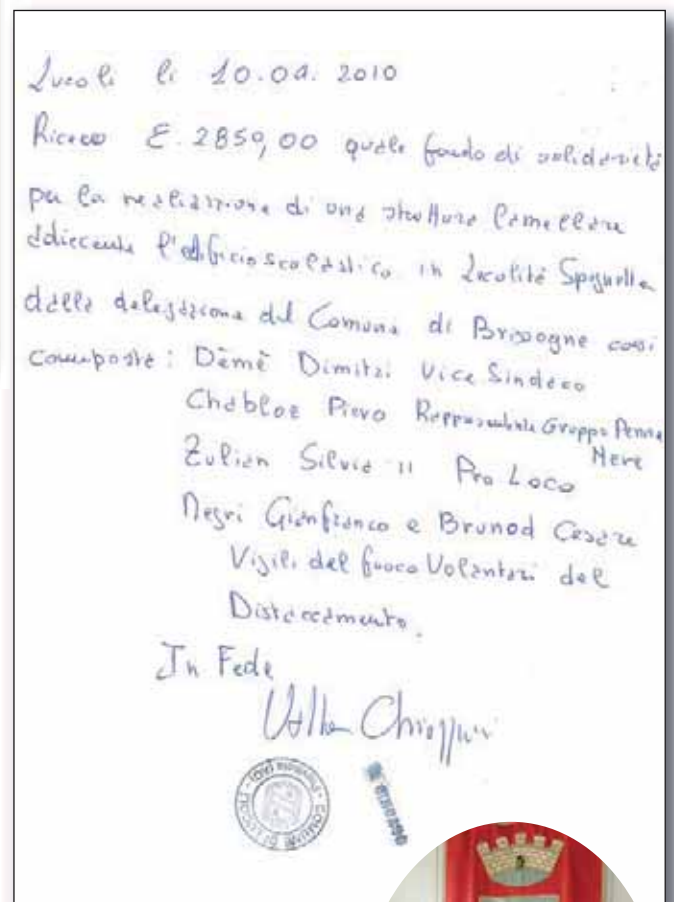 Lucoli li 10.04.2010
Ricevo €. 2850,00 quale fondo di solidarietà
per la realizzazione di una struttura lamellare
adiacente l'edificio scolastico in Località Spognella
dalla delegazione del Comune di Brissogne così
composta: Dèmè Dimitri Vice Sindaco
Chabloz Piero Rappresentante Gruppo Penne
Nere
Zulian Silvia 11 Pro Loco
Negri Gianfranco e Brunod Cesare
Vigili del fuoco Volontari del
Distaccamento.
In Fede
Chiappini
COMUNE DI LUCOLI